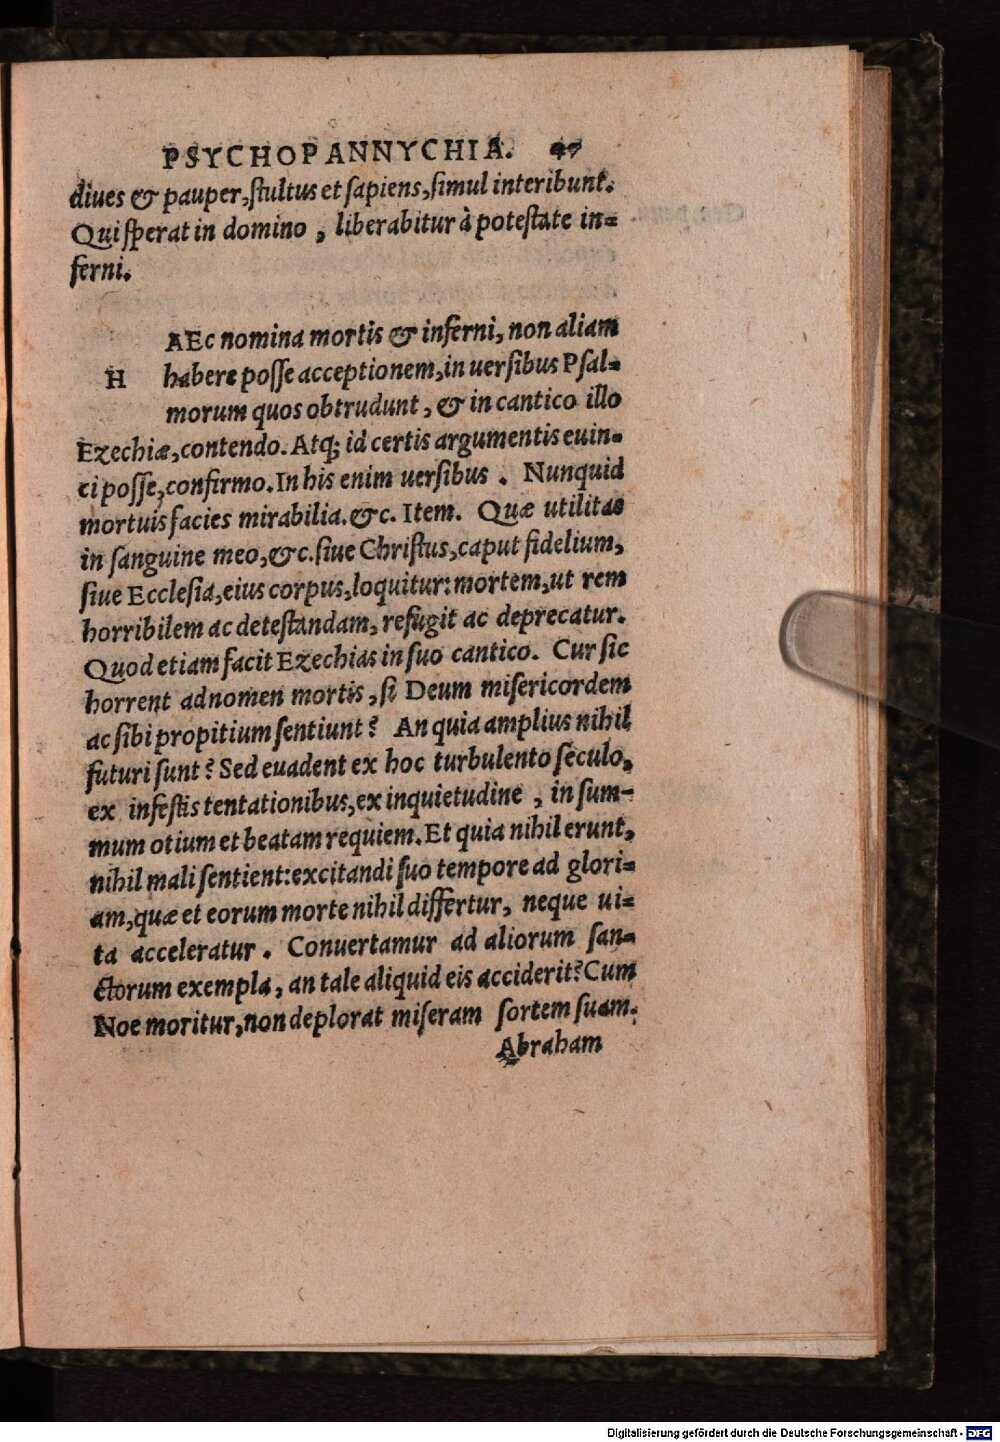 PSYCHOPANNYCHIA. 47
diues & pauper, stultus et sapiens, simul interibunt.
Qui sperat in domino, liberabitur à potestate in=
ferni.
HAEc nomina mortis & inferni, non aliam
habere posse acceptionem, in uersibus Psal=
morum quos obtrudunt, & in cantico illo
Ezechiæ, contendo. Atq; id certis argumentis euin=
ci posse, confirmo. In his enim uersibus. Nunquid
mortuis facies mirabilia. &c. Item. Quæ utilitas
in sanguine meo, &c. siue Christus, caput fidelium,
siue Ecclesia, eius corpus, loquitur: mortem, ut rem
horribilem ac detestandam, refugit ac deprecatur.
Quod etiam facit Ezechias in suo cantico. Cur sic
horrent ad nomen mortis, si Deum misericordem
ac sibi propitium sentiunt? An quia amplius nihil
futuri sunt? Sed euadent ex hoc turbulento seculo,
ex infestis tentationibus, ex inquietudine, in sum=
mum otium et beatam requiem. Et quia nihil erunt,
nihil mali sentient: excitandi suo tempore ad glori=
am, quæ et eorum morte nihil differtur, neque ui=
ta acceleratur. Conuertamur ad aliorum san=
ctorum exempla, an tale aliquid eis acciderit? Cum
Noe moritur, non deplorat miseram sortem suam.
Abraham
Digitalisierung gefördert durch die Deutsche Forschungsgemeinschaft - DFG